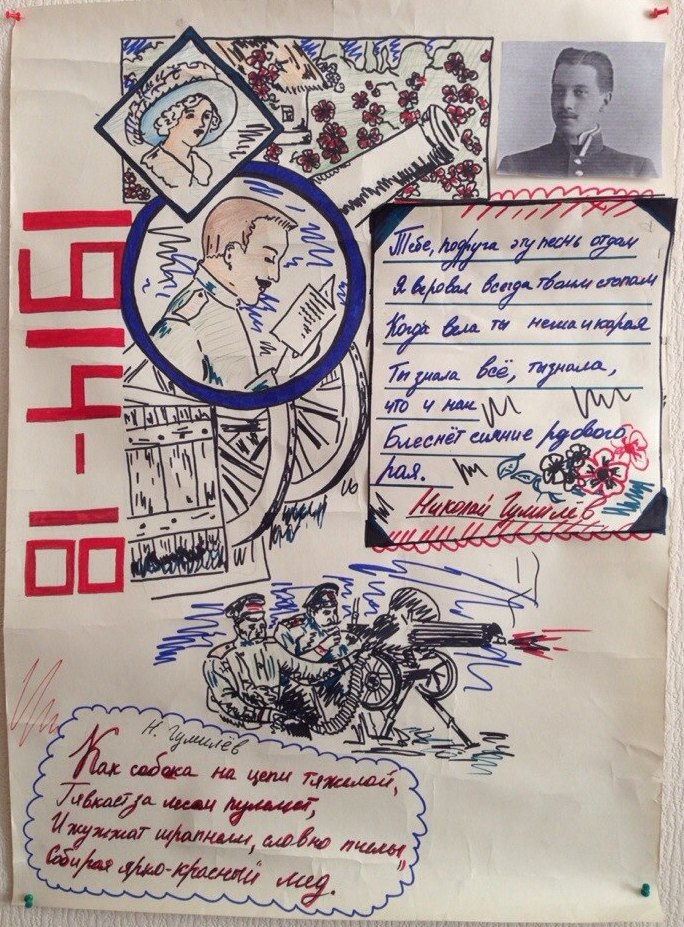 1914-18
Тебе, подруга эту песнь отдам
Я веровал всегда твоим стопам
Когда вела ты нежа и карая
Ты знала всё, ты знала,
что и нам
Блеснёт сияние рдового
рая.
Николай Гумилев
Н. Гумилёв
Как собака на цепи тяжелой,
Тявкает за лесом пулемет,
И жужжат шрапнели, словно пчелы,
Собирая ярко-красный мед.